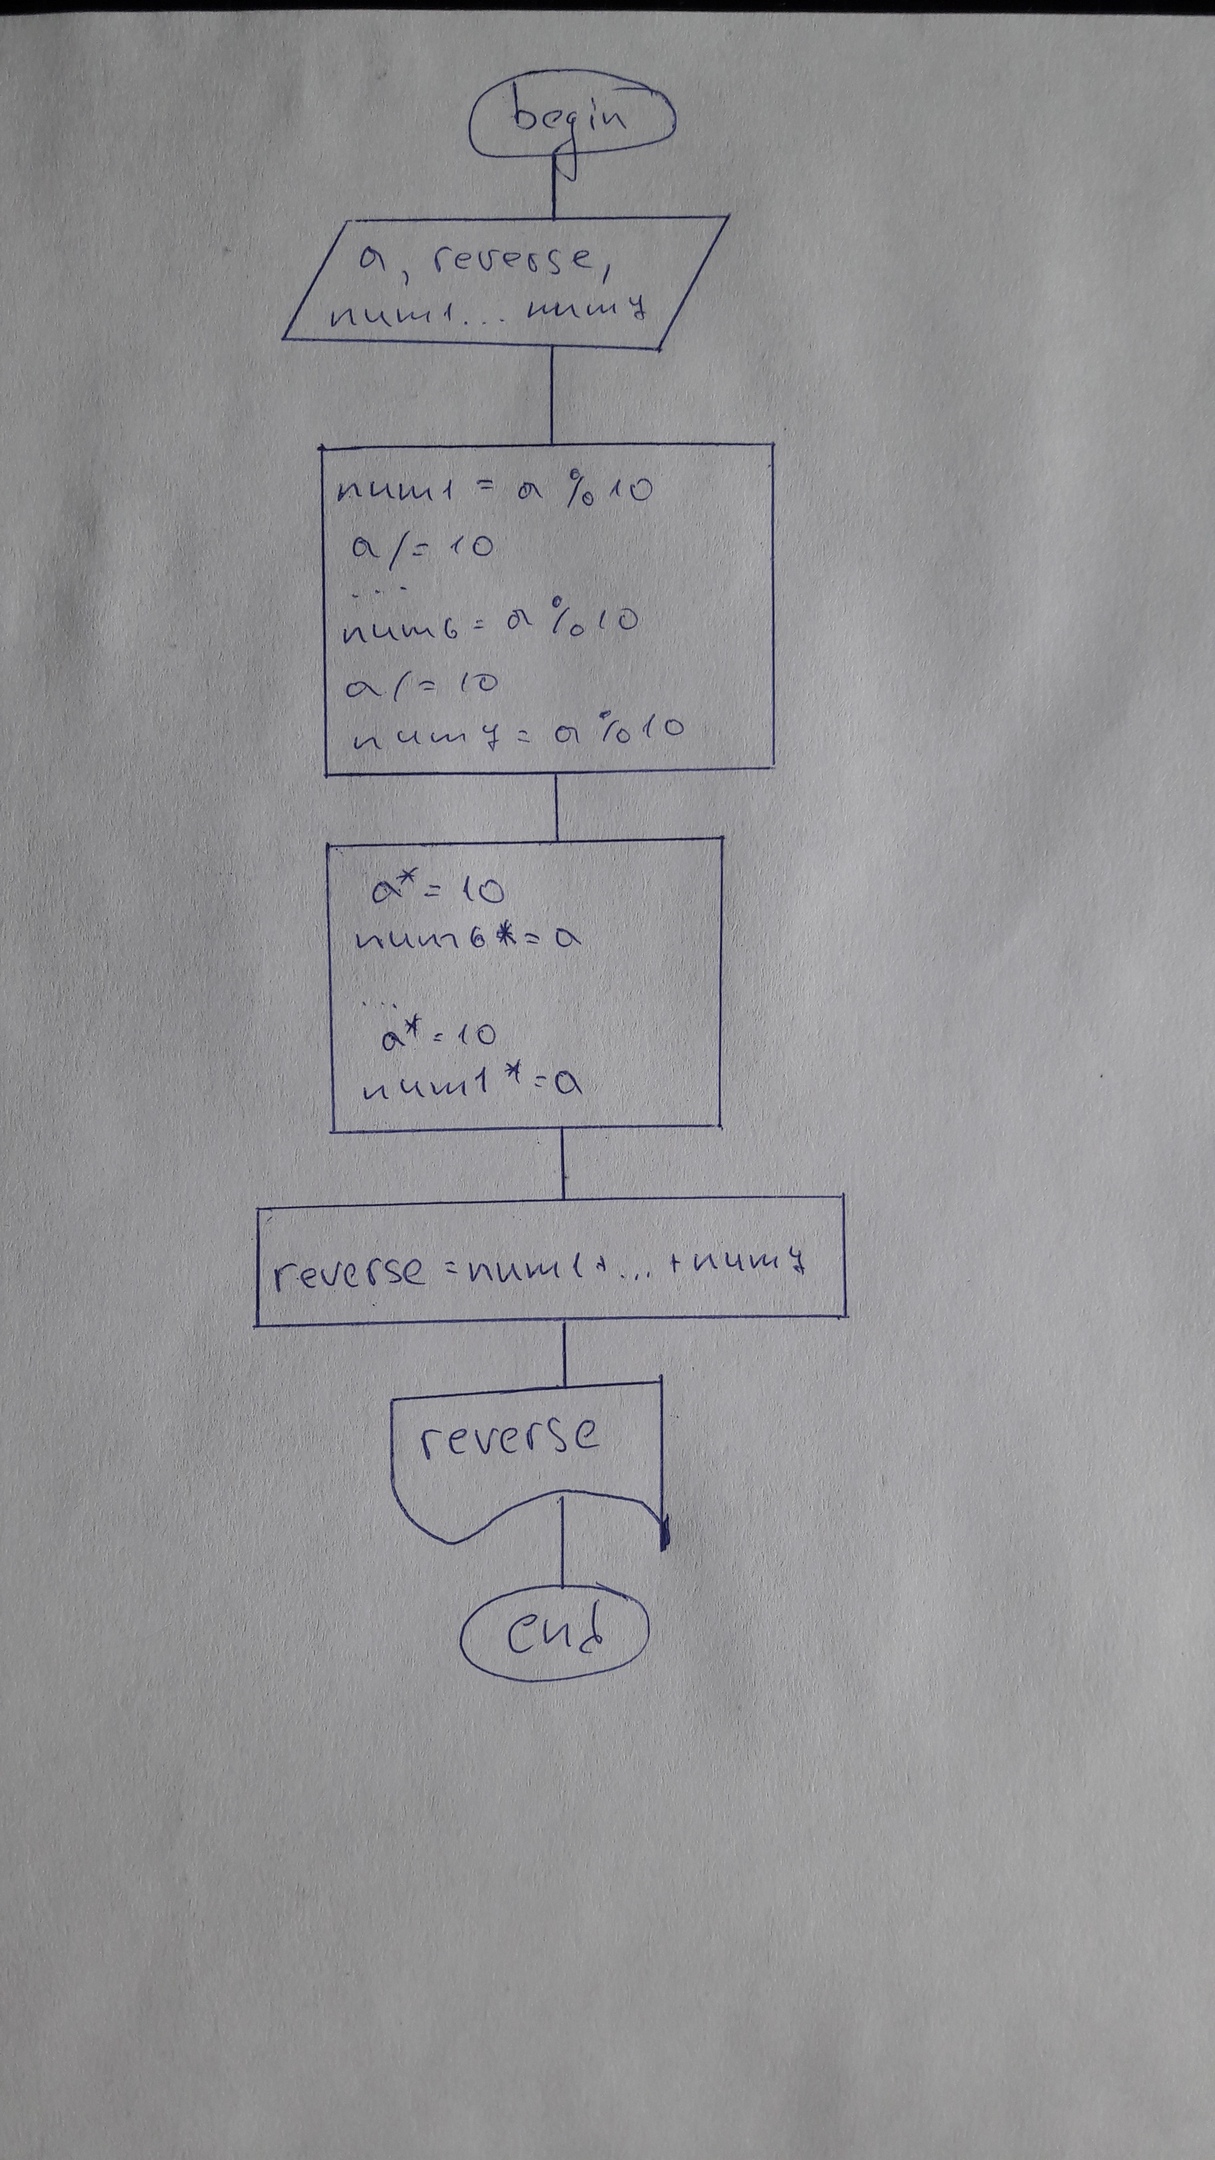 begin
a, reverse,
num1... num7
num1 = a % 10
a /= 10
...
num6 = a % 10
a /= 10
num7 = a % 10
a* = 10
num6 *= a
...
a* = 10
num1 *= a
reverse = num1+...+num7
reverse
end